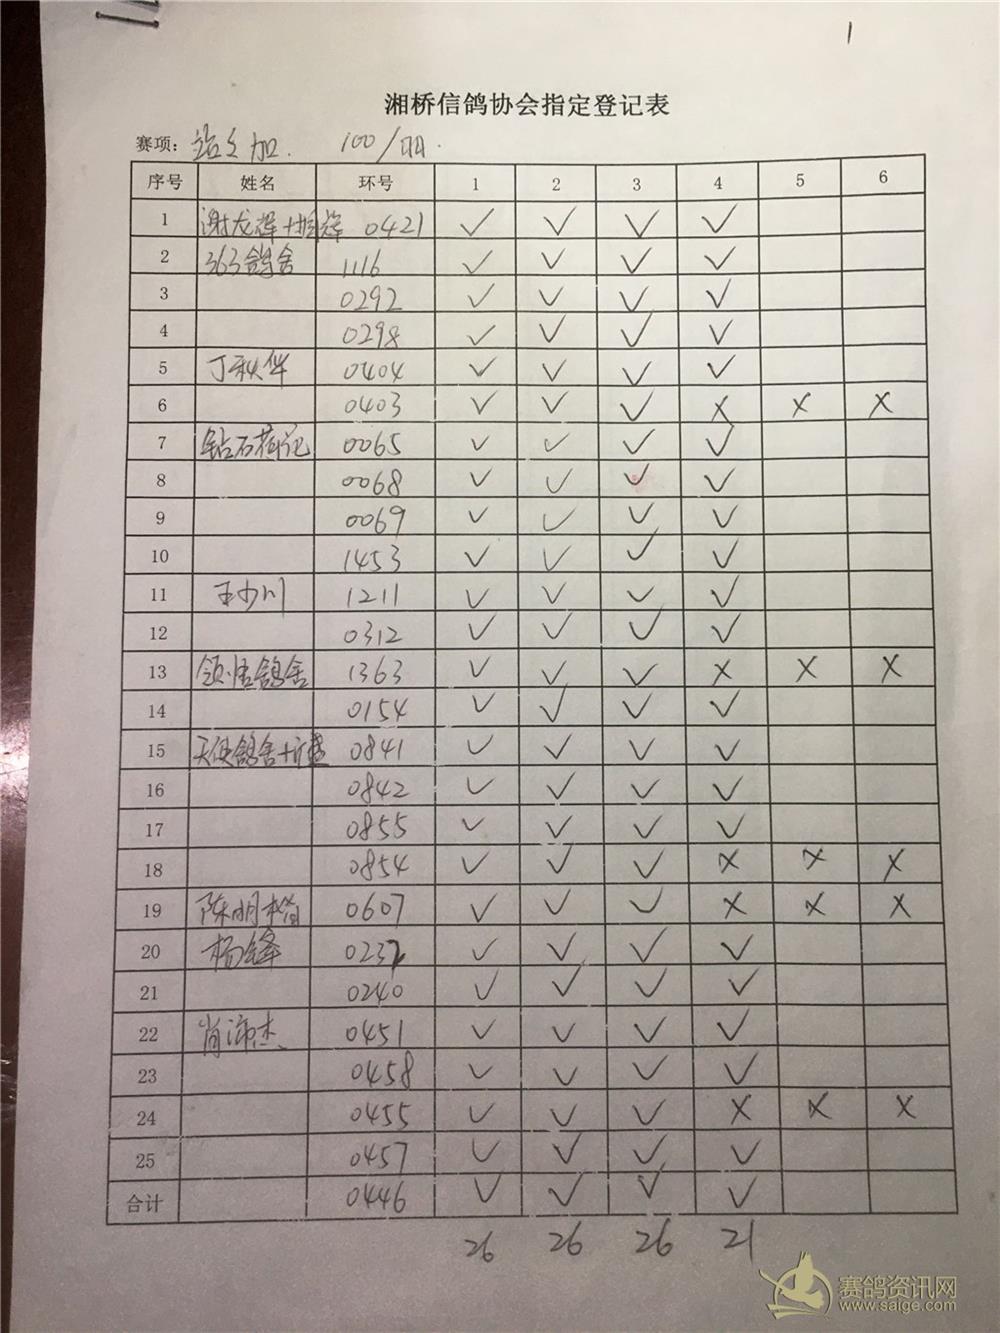 1
湘桥信鸽协会指定登记表
赛项: 加. 100/羽.
序号 姓名 环号 1 2 3 4 5 6
1 谢龙辉+ 0421 ✓ ✓ ✓ ✓
2 363鸽舍 1116 ✓ ✓ ✓ ✓
3 0292 ✓ ✓ ✓ ✓
4 0298 ✓ ✓ ✓ ✓
5 丁秋华 0404 ✓ ✓ ✓ ✓
6 0403 ✓ ✓ ✓ X X X
7 钻石荷记 0065 ✓ ✓ ✓ ✓
8 0068 ✓ ✓ ✓ ✓
9 0069 ✓ ✓ ✓ ✓
10 1453 ✓ ✓ ✓ ✓
11 王少川 1211 ✓ ✓ ✓ ✓
12 0312 ✓ ✓ ✓ ✓
13 鸽舍 1363 ✓ ✓ ✓ X X X
14 0154 ✓ ✓ ✓ ✓
15 天使鸽舍+ 0841 ✓ ✓ ✓ ✓
16 0842 ✓ ✓ ✓ ✓
17 0855 ✓ ✓ ✓ ✓
18 0854 ✓ ✓ ✓ X X X
19 陈明楷 0607 ✓ ✓ ✓ X X X
20 杨锋 0232 ✓ ✓ ✓ ✓
21 0240 ✓ ✓ ✓ ✓
22 肖沛杰 0451 ✓ ✓ ✓ ✓
23 0458 ✓ ✓ ✓ ✓
24 0455 ✓ ✓ ✓ X X X
25 0457 ✓ ✓ ✓ ✓
合计 0446 ✓ ✓ ✓ ✓
26 26 26 21
赛鸽资讯网
www.saige.com